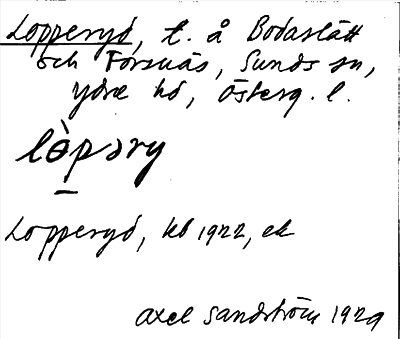 Lopperyd, t. å Bodaslätt
och Forsnäs, Sunds sn,
Ydre hd, Österg. l.
lò̱pəry
Lopperyd, kb 1922, ek
Axel Sandström 1929